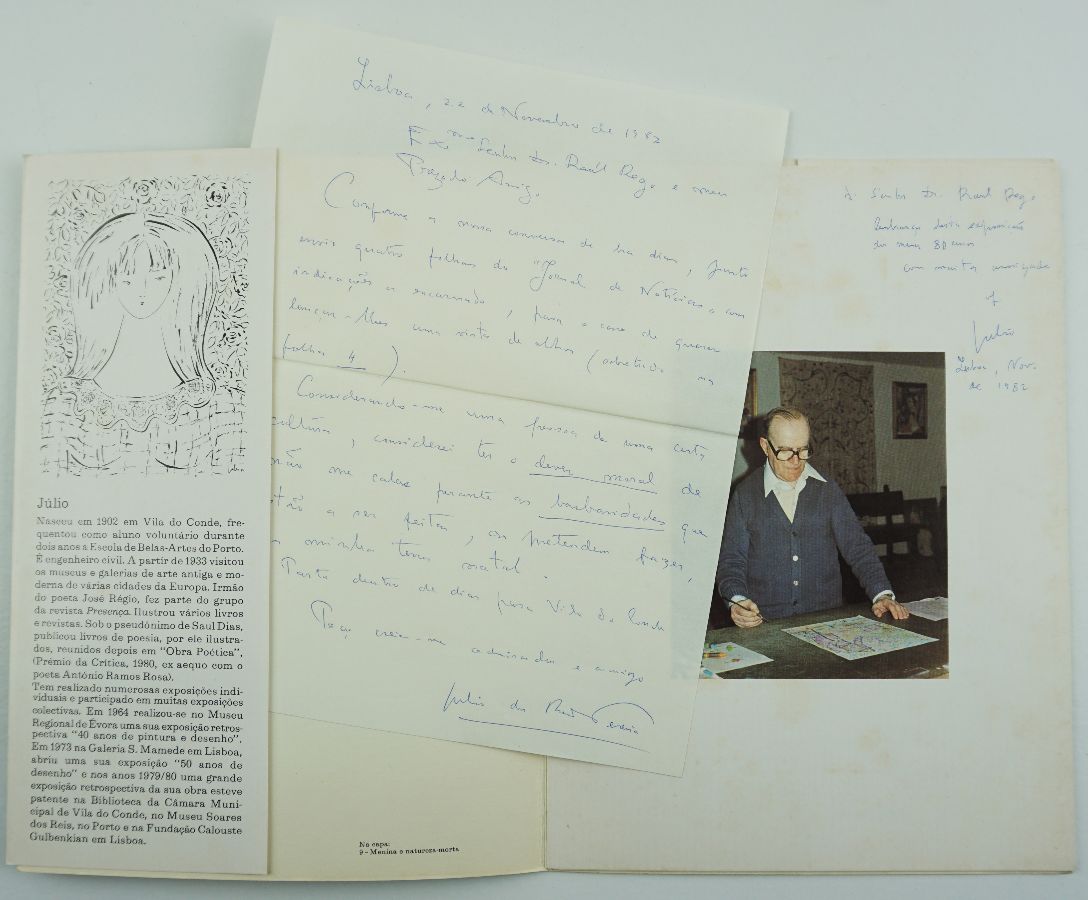 Júlio
Nasceu em 1902 em Vila do Conde, fre-
quentou como aluno voluntário durante
dois anos a Escola de Belas-Artes do Porto.
É engenheiro civil. A partir de 1933 visitou
os museus e galerias de arte antiga e mo-
derna de várias cidades da Europa. Irmão
do poeta José Régio, fez parte do grupo
da revista Presença. Ilustrou vários livros
e revistas. Sob o pseudónimo de Saul Dias,
publicou livros de poesia, por ele ilustra-
dos, reunidos depois em "Obra Poética",
(Prémio da Crítica, 1980, ex aequo com o
poeta António Ramos Rosa).
Tem realizado numerosas exposições indi-
viduais e participado em muitas exposições
colectivas. Em 1964 realizou-se no Museu
Regional de Évora uma sua exposição retros-
pectiva "40 anos de pintura e desenho".
Em 1973 na Galeria S. Mamede em Lisboa,
abriu uma sua exposição "50 anos de
desenho" e nos anos 1979/80 uma grande
exposição retrospectiva da sua obra esteve
patente na Biblioteca da Câmara Muni-
cipal de Vila do Conde, no Museu Soares
dos Reis, no Porto e na Fundação Calouste
Gulbenkian em Lisboa.
Lisboa, 22 de Novembro de 1982
Exmo Senhor Dr. Raúl Rego e meu
Prezado Amigo
Conforme a nossa conversa de há dias, junto
envio quatro folhas do "Jornal de Notícias" com
indicações a encarnado, para o caso de querer
lançar-lhes uma vista de olhos (sobretudo na
folha 4).
Considerando-me uma pessoa de uma certa
cultura, considerei ter o dever moral de
não me calar perante as barbaridades que
estão a ser feitas, ou pretendem fazer,
minha terra natal.
Parto dentro de dias para Vila do Conde
Peço creia-me
admirador e amigo
Júlio dos Reis Pereira
Na capa:
9 - Menina e natureza-morta
Ao Senhor Dr. Raul Rego
lembrança desta exposição
dos meus 80 anos
com muita amizade
Júlio
Lisboa, Nov.
de 1982